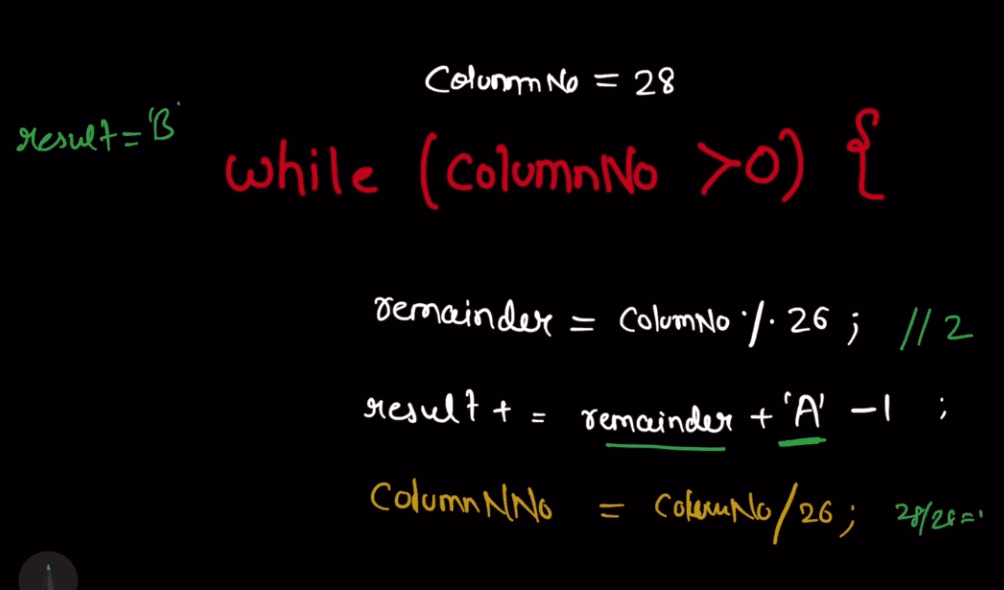 ColunmNo = 28
result = 'B'
while (ColumnNo >0) {
remainder = ColumNo % 26 ; // 2
result + = remainder + 'A' -1 ;
ColumnNNo = ColumNo/26 ; 28/26 = 1